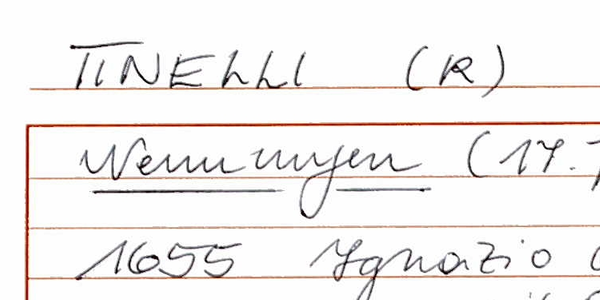 TINELLI (R)
Nennungen (17.
1655 Ignazio